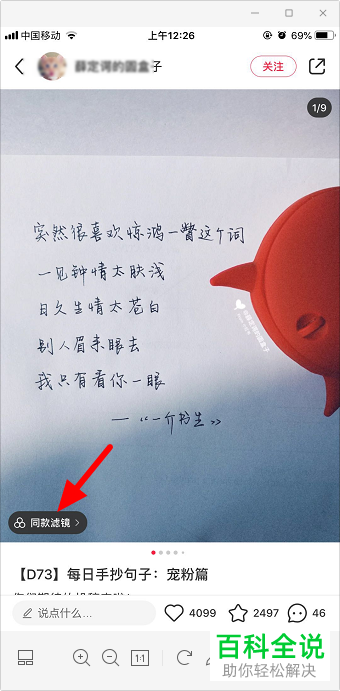 中国移动
上午12:26
69%
子
关注
1/9
突然很喜欢惊鸿一瞥这个词
一见钟情太肤浅
日久生情太苍白
别人眉来眼去
我只有看你一眼
——《一介书生》
同款滤镜
【D73】每日手抄句子：宠粉篇
说点什么...
4099
2497
46
1:1
百科全说
助你轻松解决